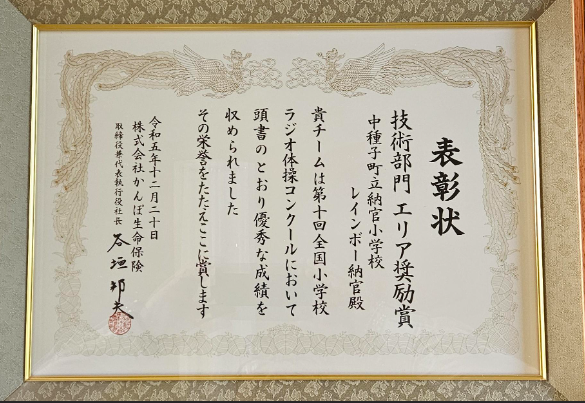 表彰状
技術部門 エリア奨励賞
中種子町立納官小学校
レインボー納官殿
貴チームは第十回全国小学校
ラジオ体操コンクールにおいて
頭書のとおり優秀な成績を
収められました
その栄誉をたたえここに賞します
令和五年十二月二十日
株式会社かんぽ生命保険
取締役兼代表執行役社長 谷垣邦夫